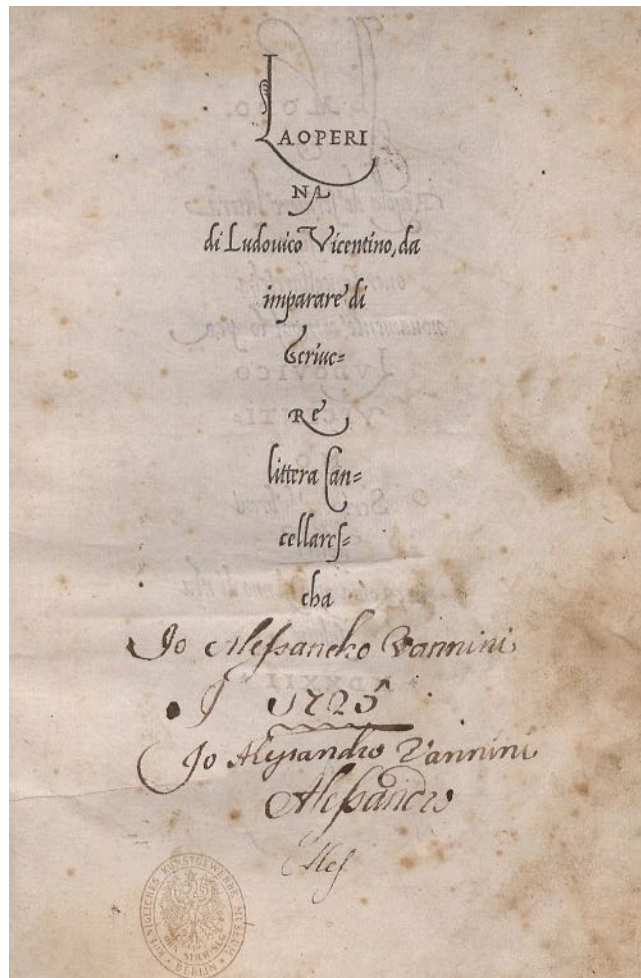 LAOPERI
NA
di Ludouico Vicentino, da
imparare di
Scriue=
RE
littera Can=
cellares=
cha
Jo Alessandro Vannini
1725
Jo Alessandro Vannini
Alessandro
Ales
KOENIGLICHES KUNSTGEWERBE MUSEUM
BERLIN